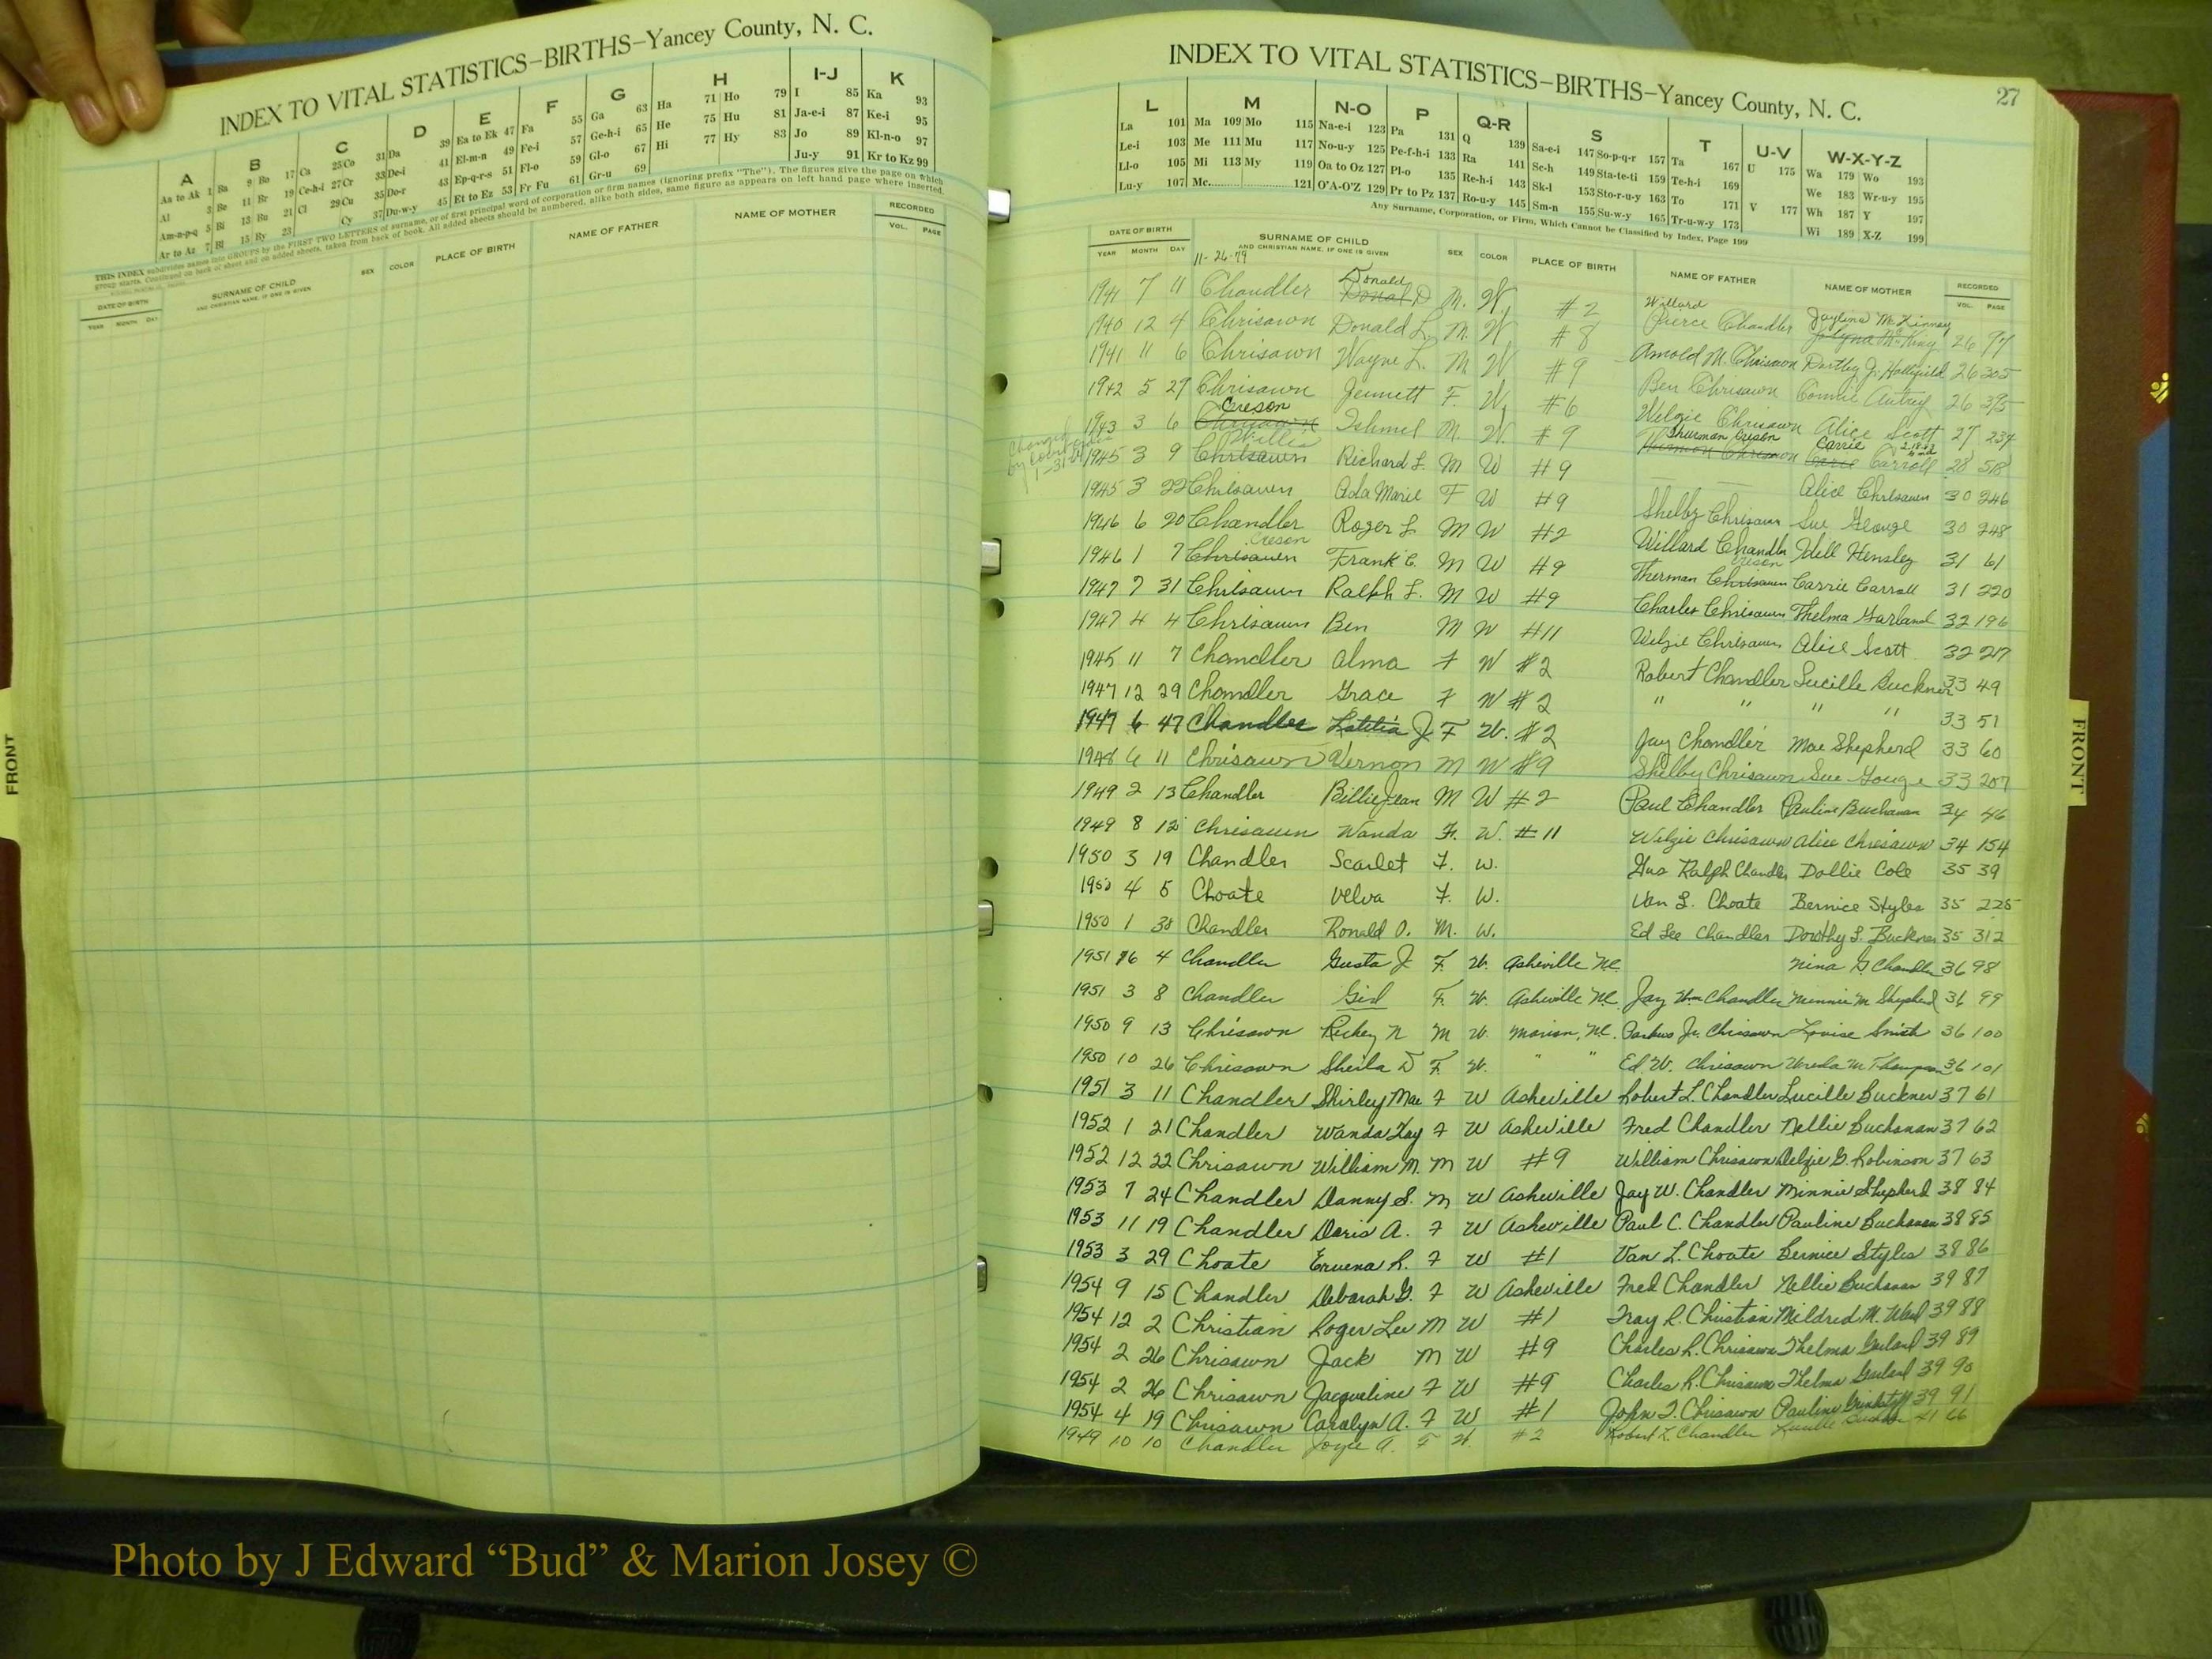 INDEX TO VITAL STATISTICS—BIRTHS—Yancey County, N. C.
A B C D E F G H I-J K
Aa to Ak 1 Ba 9 Bo 17 Ca 25 Co 31 Da 39 Ea to Ek 47 Fa 55 Ga 63 Ha 71 Ho 79 I 85 Ka 93
Al 3 Be 11 Br 19 Ce-h-i 27 Cr 33 De-i 41 El-m-n 49 Fe-i 57 Ge-h-i 65 He 75 Hu 81 Ja-e-i 87 Ke-i 95
Am-n-p-q 5 Bi 13 Bu 21 Cl 29 Cu 35 Do-r 43 Ep-q-r-s 51 Fl-o 59 Gl-o 67 Hi 77 Hy 83 Jo 89 Kl-n-o 97
Ar to Az 7 Bl 15 By 23 Cy 37 Du-w-y 45 Et to Ez 53 Fr Fu 61 Gr-u 69 Ju-y 91 Kr to Kz 99
THIS INDEX subdivides names into GROUPS by the FIRST TWO LETTERS of surname, or of first principal word of corporation or firm names (ignoring prefix "The"). The figures give the page on which
group starts. Continued on back of sheet and on added sheets, taken from back of book. All added sheets should be numbered, alike both sides, same figure as appears on left hand page where inserted.
DATE OF BIRTH SURNAME OF CHILD SEX COLOR PLACE OF BIRTH NAME OF FATHER NAME OF MOTHER RECORDED
YEAR MONTH DAY AND CHRISTIAN NAME, IF ONE IS GIVEN VOL. PAGE
FRONT
INDEX TO VITAL STATISTICS—BIRTHS—Yancey County, N. C.
27
L M N-O P Q-R S T U-V W-X-Y-Z
La 101 Ma 109 Mo 115 Na-e-i 123 Pa 131 Q 139 Sa-e-i 147 So-p-q-r 157 Ta 167 U 175 Wa 179 Wo 193
Le-i 103 Me 111 Mu 117 No-u-y 125 Pe-f-h-i 133 Ra 141 Sc-h 149 Sta-te-ti 159 Te-h-i 169 We 183 Wr-u-y 195
Ll-o 105 Mi 113 My 119 Oa to Oz 127 Pl-o 135 Re-h-i 143 Sk-l 153 Sto-r-u-y 163 To 171 V 177 Wh 187 Y 197
Lu-y 107 Mc 121 O'A-O'Z 129 Pr to Pz 137 Ro-u-y 145 Sm-n 155 Su-w-y 165 Tr-u-w-y 173 Wi 189 X-Z 199
Any Surname, Corporation, or Firm, Which Cannot be Classified by Index, Page 199
DATE OF BIRTH SURNAME OF CHILD SEX COLOR PLACE OF BIRTH NAME OF FATHER NAME OF MOTHER RECORDED
YEAR MONTH DAY AND CHRISTIAN NAME, IF ONE IS GIVEN VOL. PAGE
11-26-79
1941 7 11 Chandler Donald D M. W. #2 Willard Pierce Chandler Jaylena McKinney 26 97
1940 12 4 Chrisawn Donald L. M. W #8 Arnold M. Chrisawn 26 205
1941 11 6 Chrisawn Wayne L. M W #9 Ben Chrisawn Connie Autrey 26 395
1942 5 27 Chrisawn Jennett F. W. #6 Welzie Chrisawn Alice Scott 27 234
1943 3 6 Creson Ishmel M. W. #9 Thurman Creson Carrie Carroll 28
1945 3 9 Chrisawn Willis Richard L. M W #9 Alice Chrisawn 30 246
1945 3 22 Chrisawn Ada Marie F W #9 Shelby Chrisawn Sue Gouge 30 248
1946 6 20 Chandler Roger L M W #2 Willard Chandler Idell Hensley 31 61
1946 1 7 Chrisawn Creson Frank C. M W #9 Therman Chrisawn Creson Carrie Carroll 31 220
1947 7 31 Chrisawn Ralph L. M W #9 Charles Chrisawn Thelma Garland 32 196
1947 4 4 Chrisawn Ben M W #11 Welzie Chrisawn Alice Scott 32 217
1945 11 7 Chandler Alma F W #2 Robert Chandler Lucille Buckner 33 49
1947 12 29 Chandler Grace F W #2 " " " " 33 51
1947 6 47 Chandler Letitia J. F W. #2 Jay Chandler Mae Shepherd 33 60
1948 6 11 Chrisawn Vernon M W #9 Shelby Chrisawn Sue Gouge 33 207
1949 2 13 Chandler Billie Jean M W #2 Paul Chandler Pauline Buchanan 34 46
1949 8 12 Chrisawn Wanda F. W. #11 Welzie Chrisawn Alice Chrisawn 34 154
1950 3 19 Chandler Scarlet F. W. Gus Ralph Chandler Dollie Cole 35 39
1950 4 5 Choate Velva F. W. Van L. Choate Bernice Styles 35 225
1950 1 30 Chandler Ronald O. M. W. Ed Lee Chandler Dorothy L. Buckner 35 312
1951 6 4 Chandler Gusta J. F. W. Asheville N.C. Nina G Chandler 36 98
1951 3 8 Chandler Girl F. W. Asheville N.C. Jay Wm Chandler Minnie M Shepherd 36 99
1950 9 13 Chrisawn Rickey N M W. Marion, N.C. Jr. Chrisawn Louise Smith 36 100
1950 10 26 Chrisawn Sheila D F. W. " " Ed. W. Chrisawn M Thompson 36 101
1951 3 11 Chandler Shirley Mae F W Asheville Robert L. Chandler Lucille Buckner 37 61
1952 1 21 Chandler Wanda Kay F W Asheville Fred Chandler Nellie Buchanan 37 62
1952 12 22 Chrisawn William M. M W #9 William Chrisawn Delzie G. Robinson 37 63
1953 7 24 Chandler Danny S. M W Asheville Jay W. Chandler Minnie Shepherd 38 84
1953 11 19 Chandler Doris A. F W Asheville Paul C. Chandler Pauline Buchanan 38 85
1953 3 29 Choate Ervena R. F W #1 Van L. Choate Bernice Styles 38 86
1954 9 15 Chandler Deborah G. F W Asheville Fred Chandler Nellie Buchanan 39 87
1954 12 2 Christian Roger Lee M W #1 Troy R. Christian Mildred M. Ward 39 88
1954 2 26 Chrisawn Jack M W #9 Charles R. Chrisawn Thelma Garland 39 89
1954 2 26 Chrisawn Jacqueline F W #9 Charles R. Chrisawn Thelma Garland 39 90
1954 4 19 Chrisawn Carolyn A. F W #1 John T. Chrisawn Pauline 39 91
1949 10 10 Chandler Joyce A. F W. #2 Robert L. Chandler Lucille Buckner 41 66
FRONT
Photo by J Edward “Bud” & Marion Josey ©